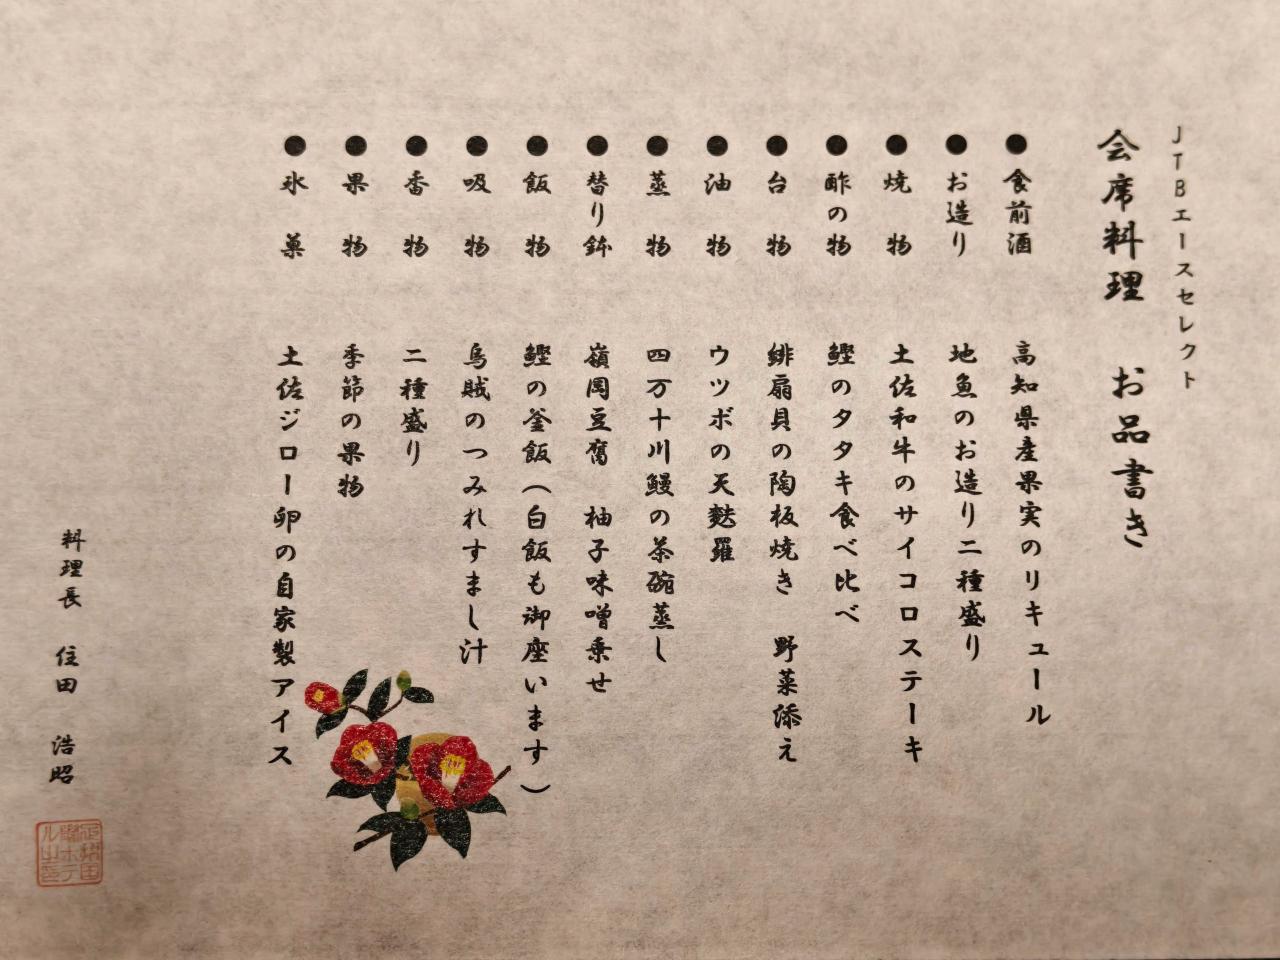 JTBエースセレクト
会席料理 お品書き
●食前酒 高知県産果実のリキュール
●お造り 地魚のお造り二種盛り
●焼物 土佐和牛のサイコロステーキ
●酢の物 鰹のタタキ食べ比べ
●台物 緋扇貝の陶板焼き 野菜添え
●油物 ウツボの天麩羅
●蒸物 四万十川鰻の茶碗蒸し
●替り鉢 嶺岡豆腐 柚子味噌乗せ
●飯物 鰹の釜飯(白飯も御座います)
●吸物 烏賊のつみれすまし汁
●香物 二種盛り
●果物 季節の果物
●氷菓 土佐ジロー卵の自家製アイス
料理長 住田 浩昭